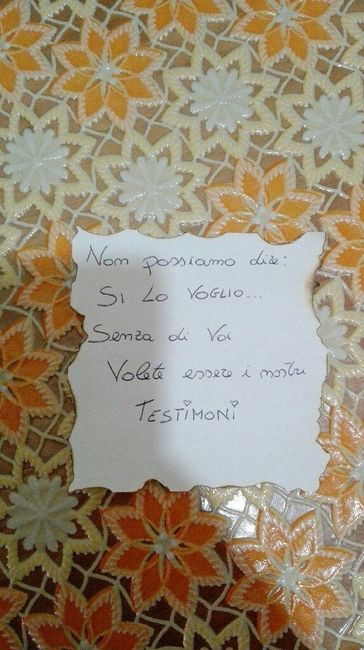 Non possiamo dire:
SI LO VOGLIO...
Senza di Voi
Volete essere i nostri
TESTIMONI